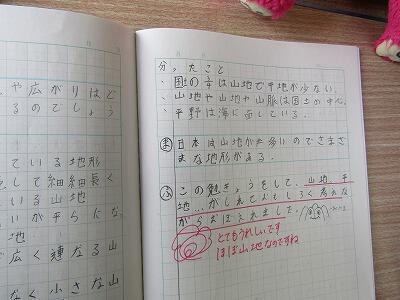 や広がりはど
るのでしょう
ている地形
して細細長く
いる山地
いが平らにな
地
で広く連なる山
く小さな山
分った こと
・国の
は山地で平地が少ない。
・山地や山地や山脈は国土の中心。
・平野は海に面している。
ま 日本は山地が多いのでさまざ
まな地形がある。
ふ この勉きょうをして、山地 平
地…がしれておもしろく考えな
がらおぼえれました。
とてもうれしいです
ほぼ山地なのですね